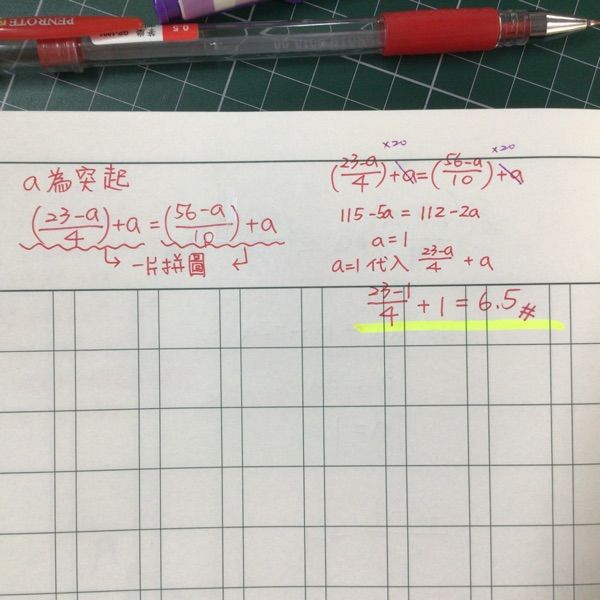 PENROTE
0.5
a為突起
(23-a/4)+a=(56-a/10)+a
一片拼圖
×20 ×20
(23-a/4)+a=(56-a/10)+a
115-5a=112-2a
a=1
a=1代入 23-a/4 +a
23-1/4 +1=6.5#